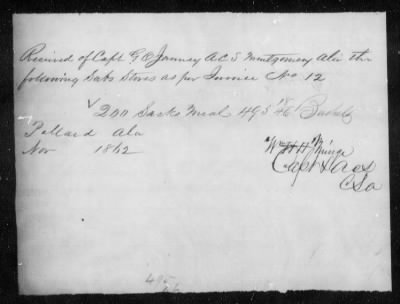 Received of Capt G O Janney A C S Montgomery Ala the
following Subs Stores as per Invoice No 12
200 Sacks Meal 495 15/46 Bushels
Pollard Ala
Nov 1862
Wm H H Minge
Capt & ACS
CSA
495